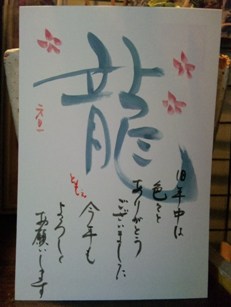 龍
旧年中は
色々と
ありがとう
ございました
今年も
よろしく
お願いします